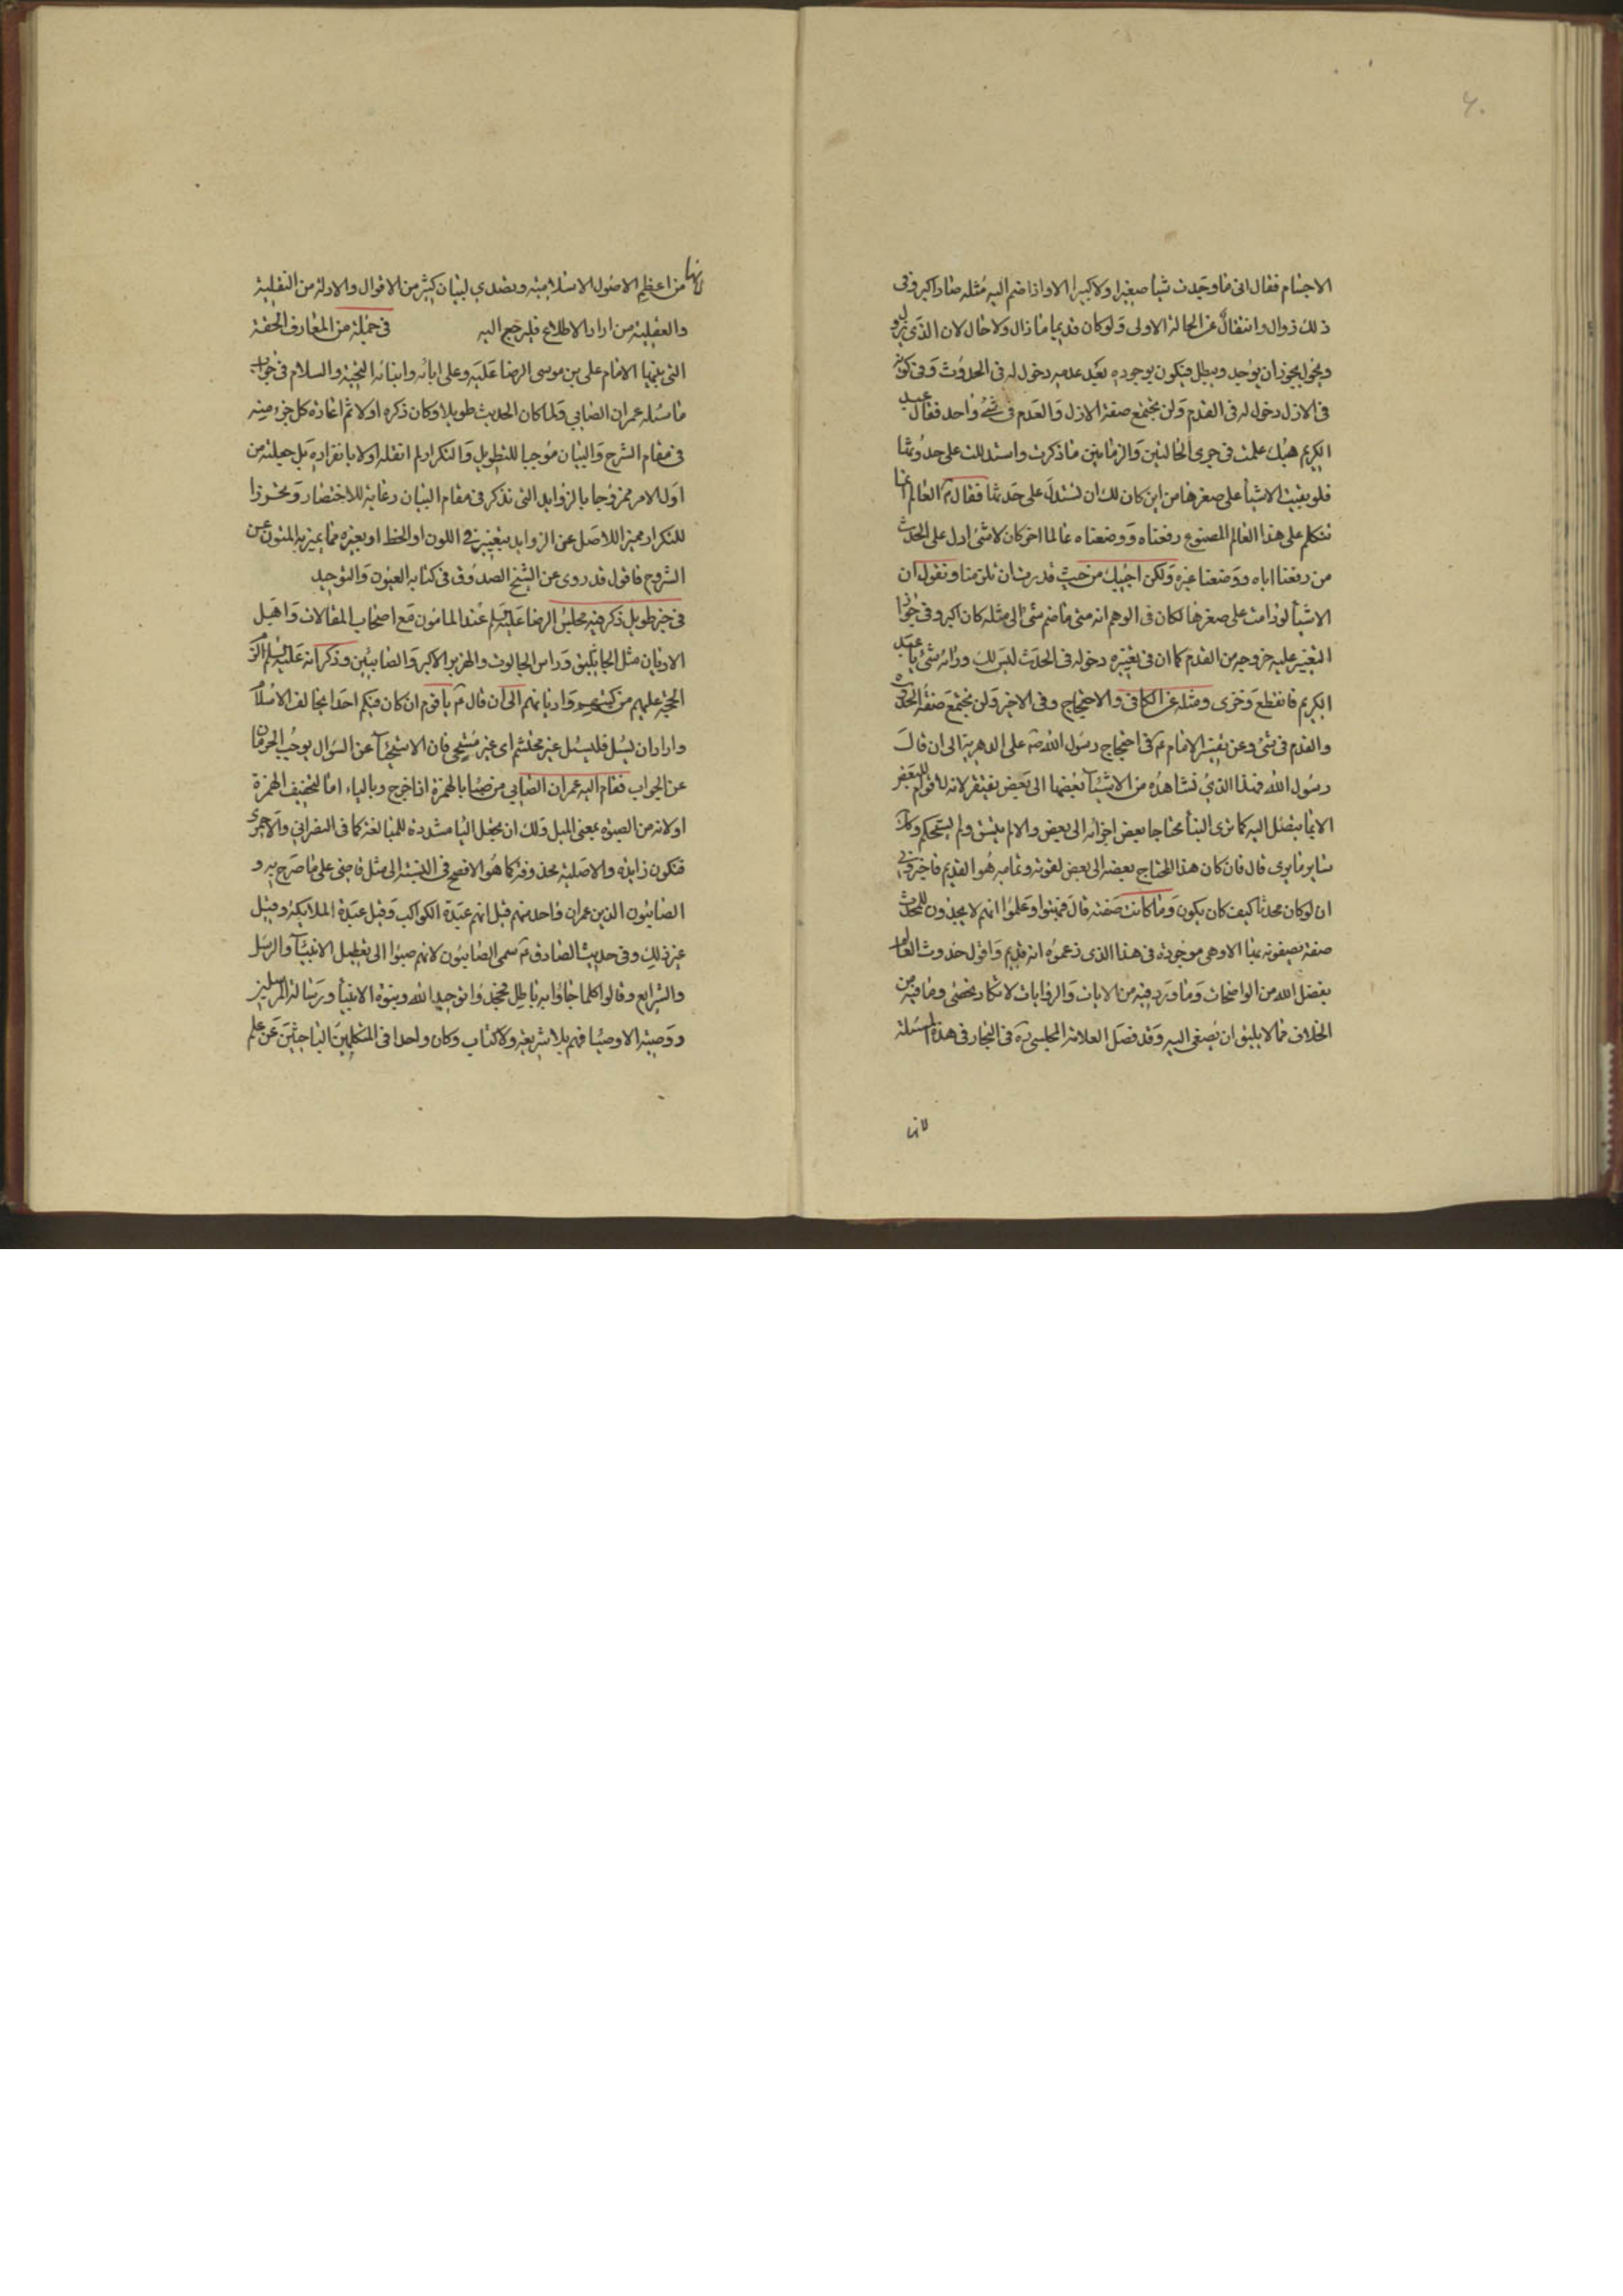 الاجسام فقال انى ما وجدت شيأ صغيرا ولا كبيرا الا واذا ضم اليه مثله صار اكبر وفى
ذلك زوال وانتقال عن الحالة الاولى ولو كان قديما ما زال ولا حال لان الذى يزول
ويحول يجوز ان يوجد ويبطل فيكون بوجوده بعد عدمه دخول له فى الحدوث وفى كونه
فى الازل دخول له فى القدم ولن يجتمع صفة الازل والعدم فى شئ واحد فقال عبد
الكريم هبك علمت فى جرى الحالتين والزمانين ما ذكرت واستدللت على حدوثها
فلو بقيت الاشيأ على صغرها من اين كان لك ان تستدل على حدثها فقال ع العالم انما
نتكلم على هذا العالم المصنوع رفعناه ووضعناه عالما اخر كان لا شئ ادل على الحدث
من رفعنا اياه ووضعنا غيره ولكن اجيبك من حيث قدرت ان تلزمنا ونقول ان
الاشيأ لو دامت على صغرها لكان فى الوهم انه متى ما ضم شئ الى مثله كان اكبر وفى جواز
التغير عليه خروجه من القدم كما ان فى تغيره دخوله فى الحدث ليس لك ورائه شئ يا عبد
الكريم فانقطع وخزى ومثله عن الكافى والاحتجاج وفى الاخير ولن يجتمع صفة الحدوث
والقدم فى شئ وعن تفسير الامام ع فى احتجاج رسول الله ص على الدهرية الى ان قال
رسول الله فهذا الذى نشاهده من الاشيآ بعضها الى بعض يفتقر لانه لا قوام للبعض
الا بما يتصل اليه كما نرى البنأ محتاجا بعض اجزائه الى بعض والا لم يتسق ولم يستحكم وكذلك
ساير ما يرى قال فان كان هذا المحتاج بعضه الى بعض لقوته وتمامه هو القديم فاخبرونى
ان لو كان محدثا كيف كان يكون وما كانت صفته قال فبهتوا وعلموا انهم لا يجدون للمحدث
صفة يصفونه بها الا وهى موجودة فى هذا الذى زعموه انه قديم واقول حدوث العالم
بفضل الله من الواضحات وما ورد فيه من الايات والروايات لا تكاد تحصى وما فيه من
الخلاف مما لا يليق ان يصغى اليه وقد فصل العلامة المجلسى ره فى البحار فى هذه المسئلة
لانها
لانها من اعظم الاصول الاسلامية وتصدى لبيان كثير من الاقوال والادلة من النقلية
والعقلية من اراد الاطلاع فليرجع اليه فى جملة من المعارف الحقة
التى بينها الامام على بن موسى الرضا عليه وعلى ابائه وابنائه التحية والسلام فى جواب
ما سئله عمران الصابي ولما كان الحديث طويلا وكان ذكره اولا ثم اعادة كل جزء منه
فى مقام الشرح والبيان موجبا للتطويل والتكرار لم انقله اولا بانفراده بل جعلته من
اول الامر ممزوجا بالزوايد التى تذكر فى مقام البيان رعاية للاختصار وتحرزا
للتكرار مميزا للاصل عن الزوايد بتغيير فى اللون او الخط او بغيره مما يميز به المتون عن
الشروح فاقول قد روى عن الشيخ الصدوق فى كتابه العيون والتوحيد
فى خبر طويل ذكر فيه مجلس الرضا عليه السلم عند المامون مع اصحاب المقالات واهل
الاديان مثل الجاثليق وراس الجالوت والهربز الاكبر والصابئين وذكر انه عليه السلم الزم
الحجة عليهم من كتبهم واديانهم الى ان قال ع يا قوم ان كان فيكم احدا يخالف الاسلام
واراد ان يسئل فليسئل غير محتشم اى غير مستحى فان الاستحيآ عن السؤال يوجب الحرمان
عن الجواب فقام اليه عمران الصابي من صبأ بالهمزة اذا خرج وبالياء اما لتخفيف الهمزة
او لانه من الصبوة بمعنى الميل ولك ان تجعل اليا مشددة للمبالغة كما فى النصرانى والاحمرى
فتكون زايدة والاصلية محذوفة كما هو الافصح فى النسبة الى مثل قاضى على ما صرح به و
الصابئون الذين عمران واحد منهم قيل انهم عبدة الكواكب وقيل عبدة الملايكة وقيل
غير ذلك وفى حديث الصادق ع سمى الصابئون لانهم صبوا الى تعطيل الانبيآ والرسل
والشرايع وقالوا كلما جاؤا به باطل فجحدوا توحيد الله ونبوة الانبيأ ورسالة المرسلين
ووصية الاوصيا فهم بلا شريعة ولا كتاب وكان واحدا فى المتكلمين الباحثين عن علم